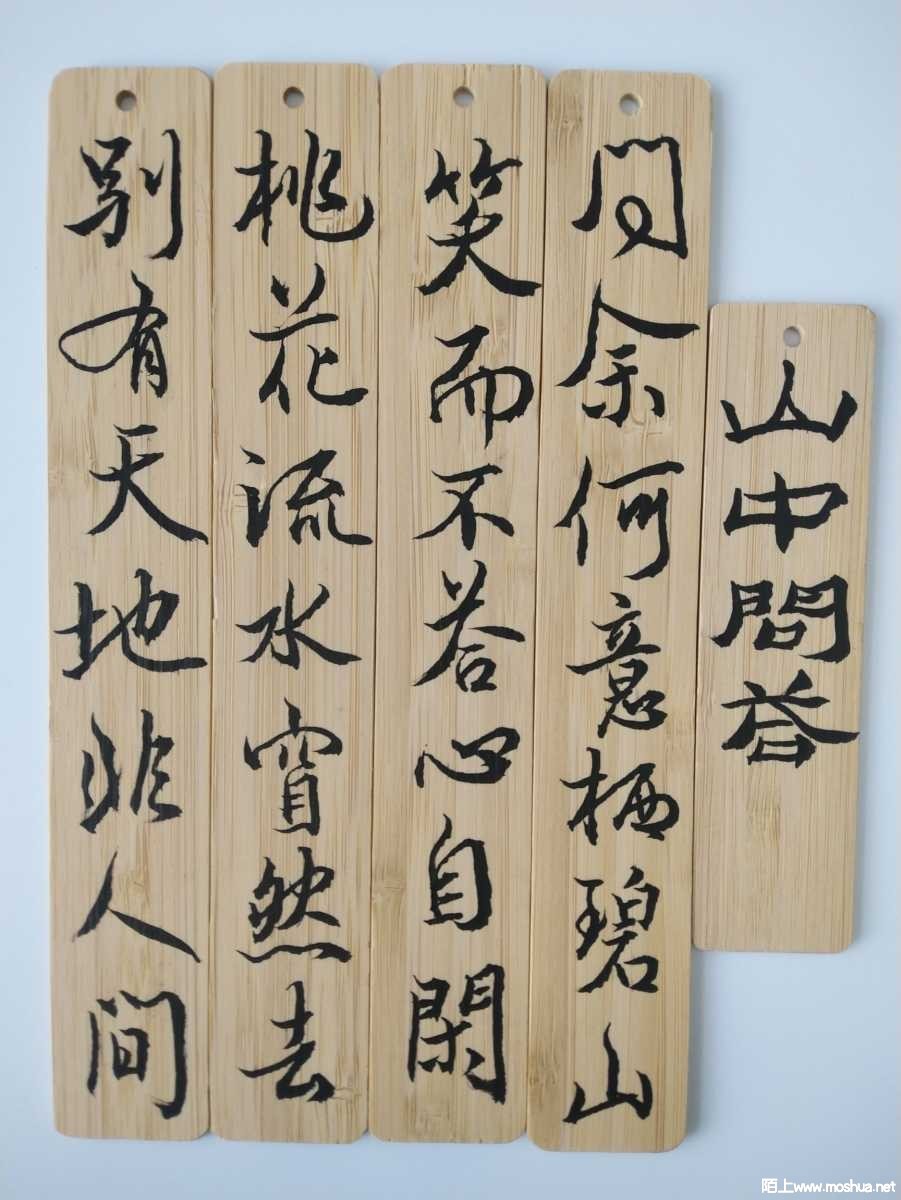 山中問荅
問余何意栖碧山
笑而不荅心自閑
桃花流水窅然去
別有天地非人間
陌上www.moshua.net